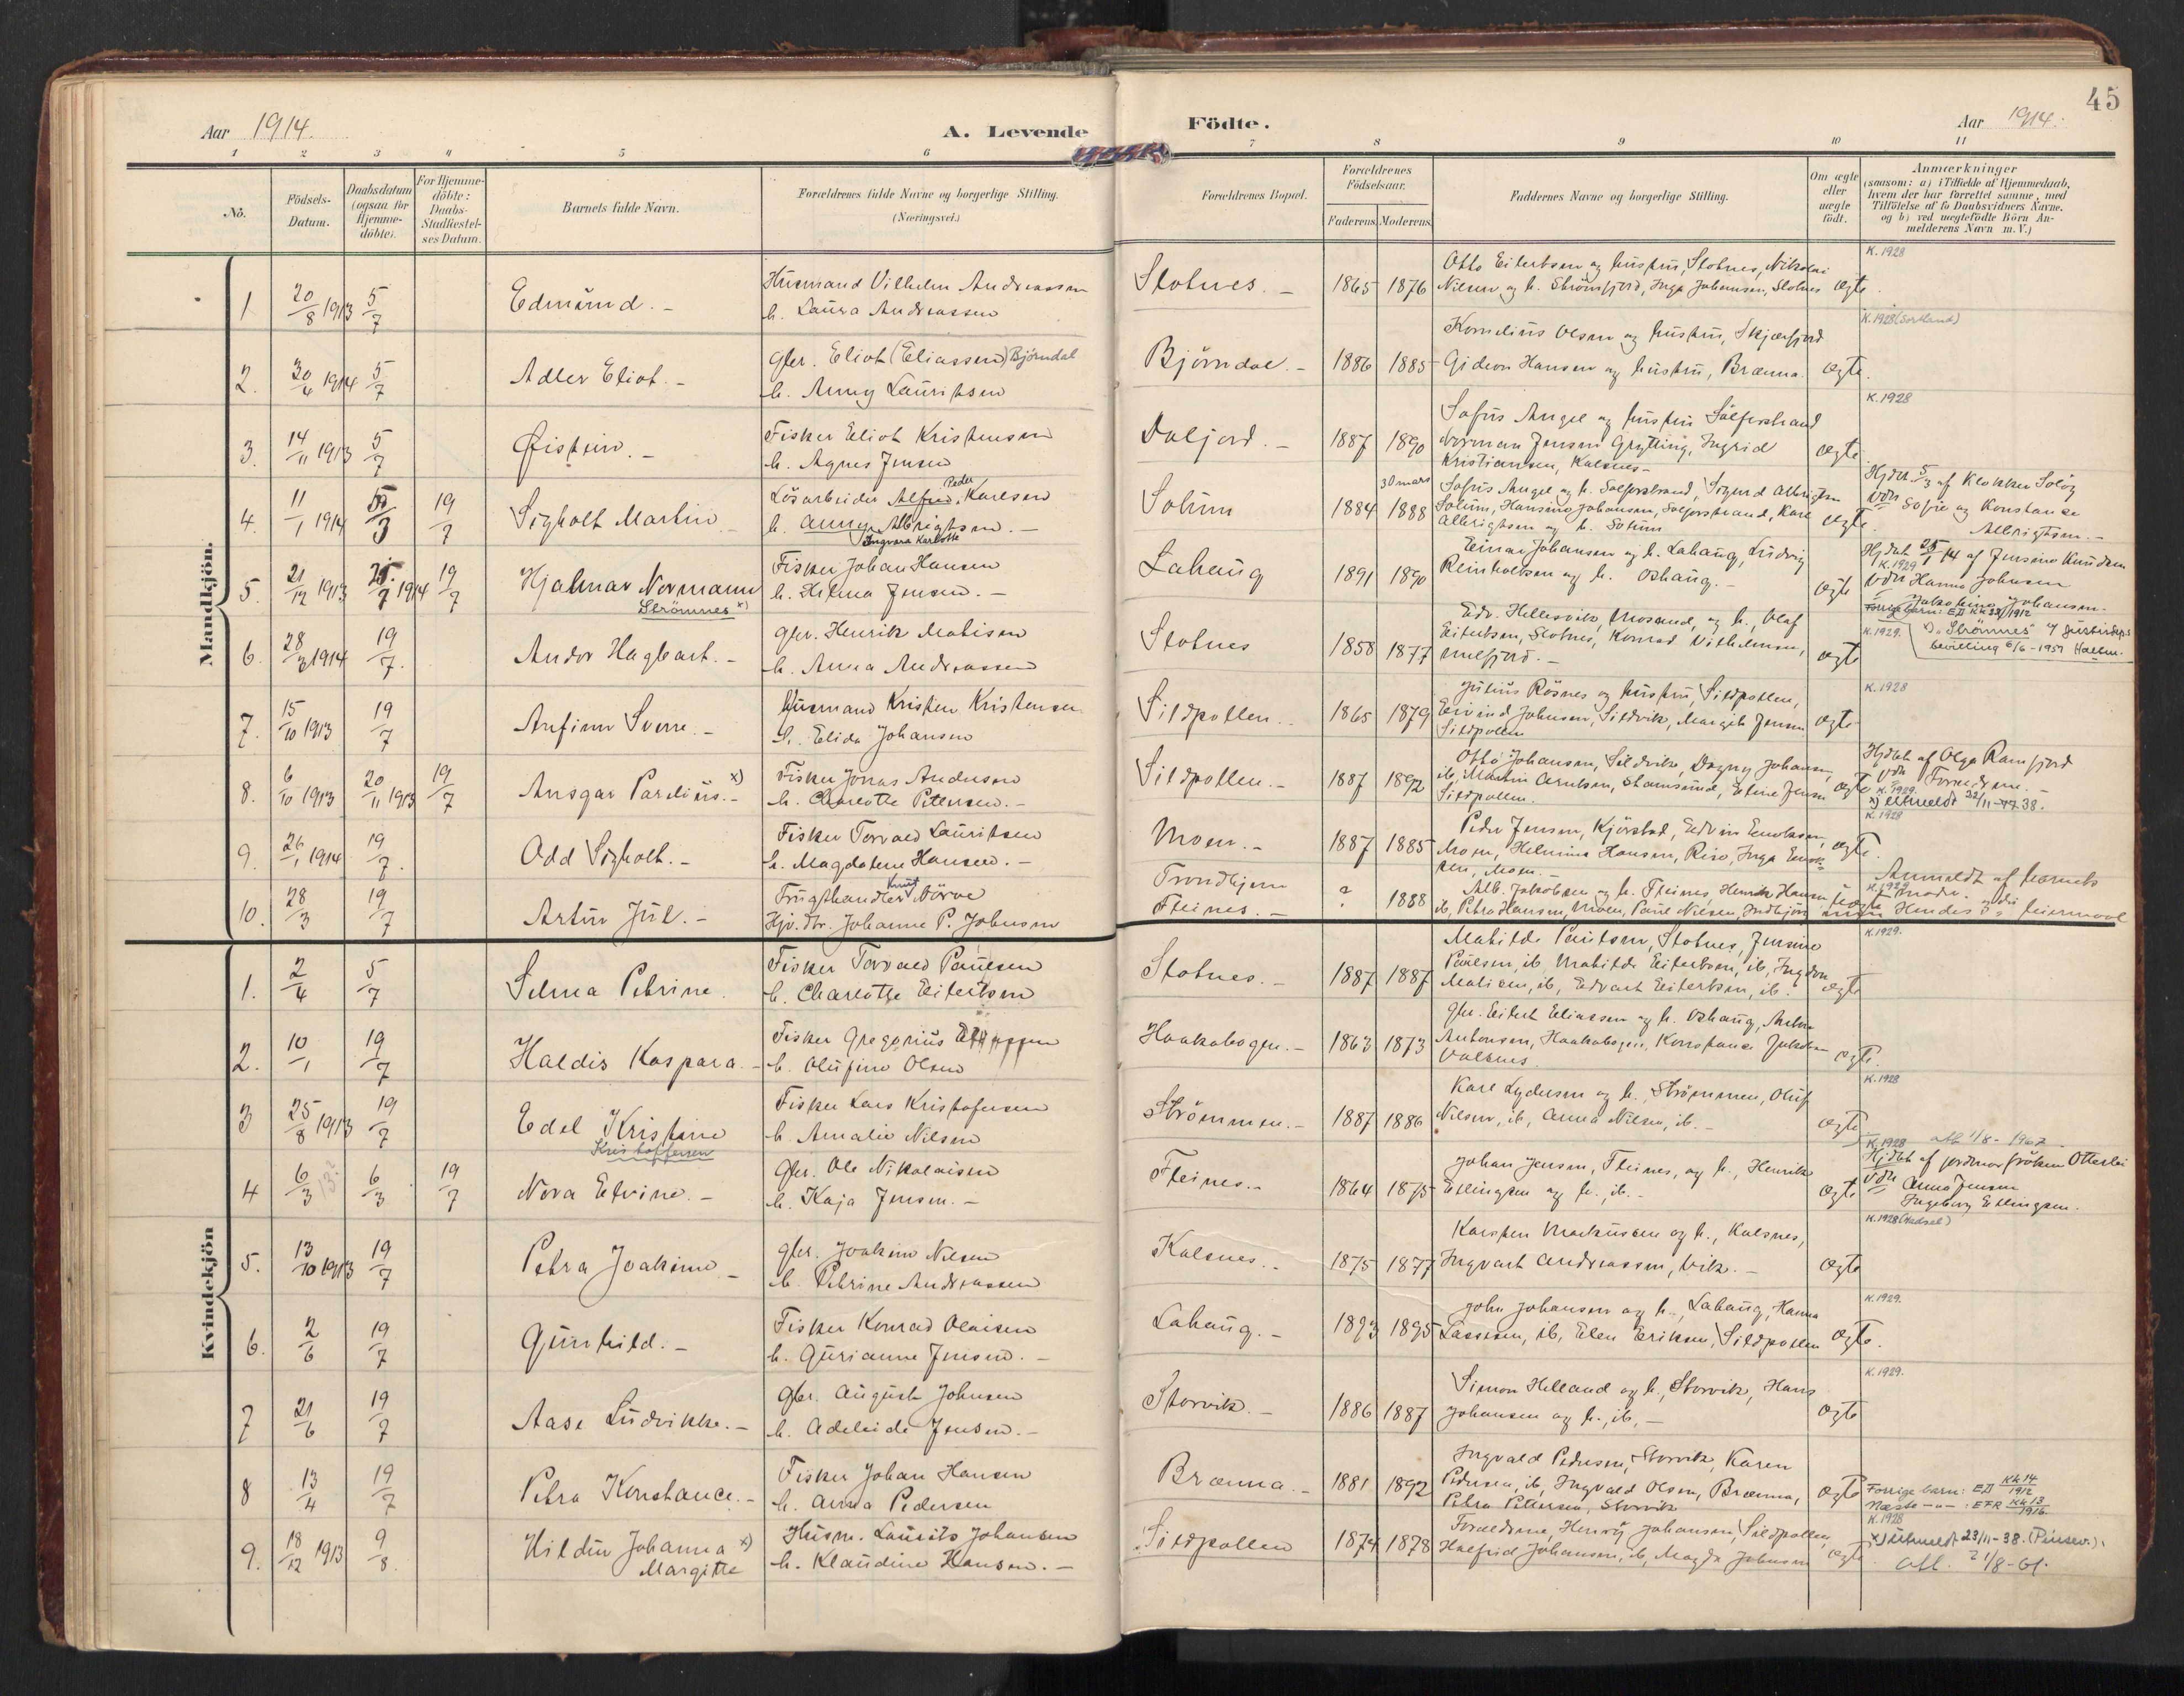 45
Aar 1914.
A. Levende Födte.
Aar 1914.
1 2 3 4 5 6 7 8 9 10 11
No.
Födsels-
Datum.
Daabsdatum
(ogsaa for
Hjemme-
döbte).
For Hjemme-
döbte:
Daabs-
Stadfæstel-
ses Datum.
Barnets fulde Navn.
Forældrenes fulde Navne og borgerlige Stilling.
(Næringsvei.)
Forældrenes Bopæl.
Forældrenes
Födselsaar.
Faderens. Moderens.
Faddernes Navne og borgerlige Stilling.
Om ægte
eller
uægte
födt.
Anmærkninger
(saasom: a) i Tilfælde af Hjemmedaab,
hvem der har forrettet samme, med
Tilföielse af to Daabsvidners Navne.
og b) ved uægtefödte Börn An-
melderens Navn m. V.)
Mandkjön.
1 20/8 1913 5/7 Edmund. -
Husmand Vilhelm Andreassen
h. Laura Andreassen
Slotnes. - 1865 1876
Otto Eilertsen og hustru, Slotnes, Nikolai
Nilsen og h. Strömfjord, Inga Johansen, Slotnes
ægte.
K. 1928
2. 30/4 1914 5/7 Adler Eliot. -
Gbr. Eliot (Eliassen) Björndal
h. Anny Lauritsen
Björndal. - 1886 1885
Kornelius Olsen og hustru, Skjærfjord
Gideon Hansen og hustru, Brænna.
ægte.
K. 1928 (Sortland)
3. 14/11 1913 5/7 Øistein. -
Fisker Eliot Kristensen
h. Agnes Jensen
Daljord. - 1887 1890
Sofus Angel og hustru Sålferstrand
Norman Jensen Grytting, Ingrid
Kristiansen, Kalsnes -
ægte
K. 1928
4. 11/1 1914 5/3 19/7 Sigholt Martin -
Lösarbeider Alfred Peder Karlsen
h. Anny Albrigtsen. -
Ingvara Karlotte
Solum 1884 30 mars 1888
Sofus Angel og h. Salferstrand, Sigurd Albrigtsen
Solum, Hansine Johansen, Salferstrand, Karl
Albrigtsen og h. Solum
ægte.
Hjdbt. 5/3 af Klokker Solög
Vdn Sofie og Konstanse
Albrigtsen. -
5. 21/12 1913 25/1 1914 19/7 Hjalmar Normann
Strömnes x)
Fisker Johan Hansen
h. Helma Jensen. -
Lahaug 1891 1890
Einar Johansen og h. Lahaug, Ludvig
Reinholtsen og h. Oshaug. -
ægte
Hjdbt 25/1 14 af Jensine Knudsen
K. 1929
Vdn Hanna Johnsen
Jakobine Johansen.
Forrige barn: ED Kk 22/1912
6. 28/3 1914 19/7. Andor Hagbart. -
Gbr. Henrik Matisen
h. Anna Andreassen
Slotnes 1858 1877
Edv. Hellesvik, Mosand, og h., Olaf
Eilertsen, Slotnes, Konrad Vilhelmsen,
ægte
K. 1929.
x) "Strömnes" if justisdep.s
bevilling 6/6 - 1951 Hallm.
7. 15/10 1913 19/7 Anfinn Sverre. -
Husmand Kristen Kristensen
h. Elida Johansen
Sildpollen. - 1865 1879
Julius Rösnes og hustru, Sildpollen,
Eivind Johnsen, Sildvik, Margit Jensen
Sildpollen
ægte.
K. 1928
8. 6/10 1913 20/11 1913 19/7 Ansgar Pardius. - x)
Fisker Jonas Andersen
h. Charlotte Petersen. -
Sildpollen. - 1887 1892
Otto Johansen, Sildvik, Dagny Johansen,
ib, Martin Arntsen, Stamsund, Eline Jensen
Sildpollen.
ægte
Hjdbt af Olga Ramfjord
Vdn Forældrene. -
K. 1929.
x) utmeldt 22/11 - 38.
9. 26/1 1914 19/7. Odd Sigholt. -
Fisker Torvald Lauritsen
h. Magdalene Hansen. -
Moen. - 1887 1885
Peder Jensen, Kjörstad, Edvin Enoksen,
Moen, Helmina Hansen, Riso, Inga Enok-
sen, Moen. -
ægte.
K. 1928
10. 28/3 19/7 Artur Jul. -
Frugthandler Knut Nörve
Hjv. dtr. Johanne P. Johnsen
Trondhjem
Fleines. - ? 1888
Alb. Jakobsen og h. Fleines, Henrik Hansen
ib, Petra Hansen, Moen, Paul Nilsen, Indbjör
uægte
Anmeldt af barnets
K. 1929
mor.
Hendes 3die leiermaal
Kvindekjön
1. 2/4 5/7 Selma Petrine.
Fisker Torvald Paulsen
h. Charlotte Eilertsen
Slotnes. - 1887 1887
Matilde Paulsen, Slotnes, Jensine
Paulsen, ib, Matilde Eilertsen, ib, Ingdon
Matisen, ib, Edvart Eilertsen, ib.
ægte
K. 1929.
2. 10/1 19/7 Haldis Kaspara. -
Fisker Gregorius
h. Olufine Olsen
Haakabogen. - 1863 1873
Gbr. Eilert Eliassen og h. Oshaug, Anton
Antonsen, Haakabogen, Konstanse Jakobsen
Valsnes
ægte.
3 25/8 1913 19/7 Edel Kristine
Kristoffersen
Fisker Lars Kristofersen
h. Amalie Nilsen
Strömmen. - 1887 1886
Karl Lydersen og h., Strömmen, Oluf
Nilsen, ib, Anna Nilsen, ib. -
ægte
K. 1928
4 6/3 13? 6/3. 19/7 Nora Elvine. -
Gbr. Ole Nikolaisen
h. Kaja Jensen. -
Fleines. - 1864 1875
Johan Jensen, Fleines, og h., Henrik
Ellingsen og h., ib. -
ægte
K. 1928 att 1/8 - 1967.
Hjdbt af jordmor fröken Otterlei
Vdn Anna Jensen
Ingeborg Ellingsen.
5. 13/10 1913 19/7 Petra Joakime -
Gbr. Joakim Nilsen
h. Petrine Andreassen
Kalsnes. - 1875 1877
Karsten Markussen og h., Kalsnes,
Ingvart Andreassen, Vik. -
ægte
K. 1928 (Hadsel)
6. 2/6 19/7 Gunhild. -
Fisker Konrad Olaisen
h. Gurianne Jensen. -
Lahaug. - 1893 1895
John Johansen og h., Lahaug, Hanna
Lassesen, ib, Elen Eriksen, Sildpollen
ægte.
K. 1929.
7 21/6 19/7 Aase Ludvikke. -
Gbr. August Johnsen
h. Adeleide Jensen. -
Storvik. - 1886 1887
Simon Helland og h., Storvik, Hans
Johansen og h., ib, -
ægte
K. 1929.
8 13/4 19/7 Petra Konstance. -
Fisker Johan Hansen
h. Anna Pedersen
Brænna. - 1881 1892
Ingvald Pedersen, Storvik, Karen
Pedersen, ib, Ingvald Olsen, Brænna,
Petra Pettersen, Storvik
ægte
Forrige barn: ED Kk 14/1912
Næste -"- : EFR Kk 13/1916.
9. 18/12 1913 9/8. Hildur Johanna x)
Margitte
Husm. Laurits Johansen
h. Klaudine Hansen. -
Sildpollen 1874 1878
Forældrene, Henry Johansen, Sildpollen,
Halfrid Johansen, ib, Magda Johnsen
ægte
K. 1928
x) utmeldt 23/11 - 38. (Pinsev.).
att. 21/8 - 61.